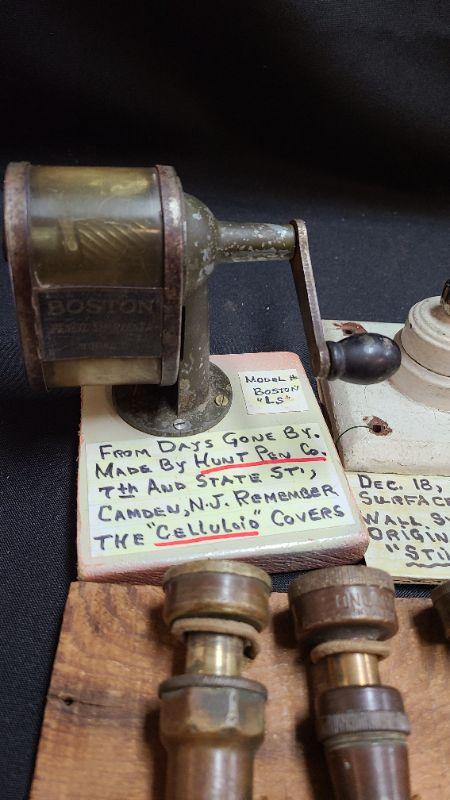 BOSTON
PENCIL SHARPENER
MODEL #
BOSTON
"LS"
FROM DAYS GONE BY.
MADE BY HUNT PEN CO.
7th AND STATE ST',
CAMDEN, N.J. REMEMBER
THE "CELLULOID" COVERS
DEC. 18,
SURFACE
WALL S
ORIGIN
"STI